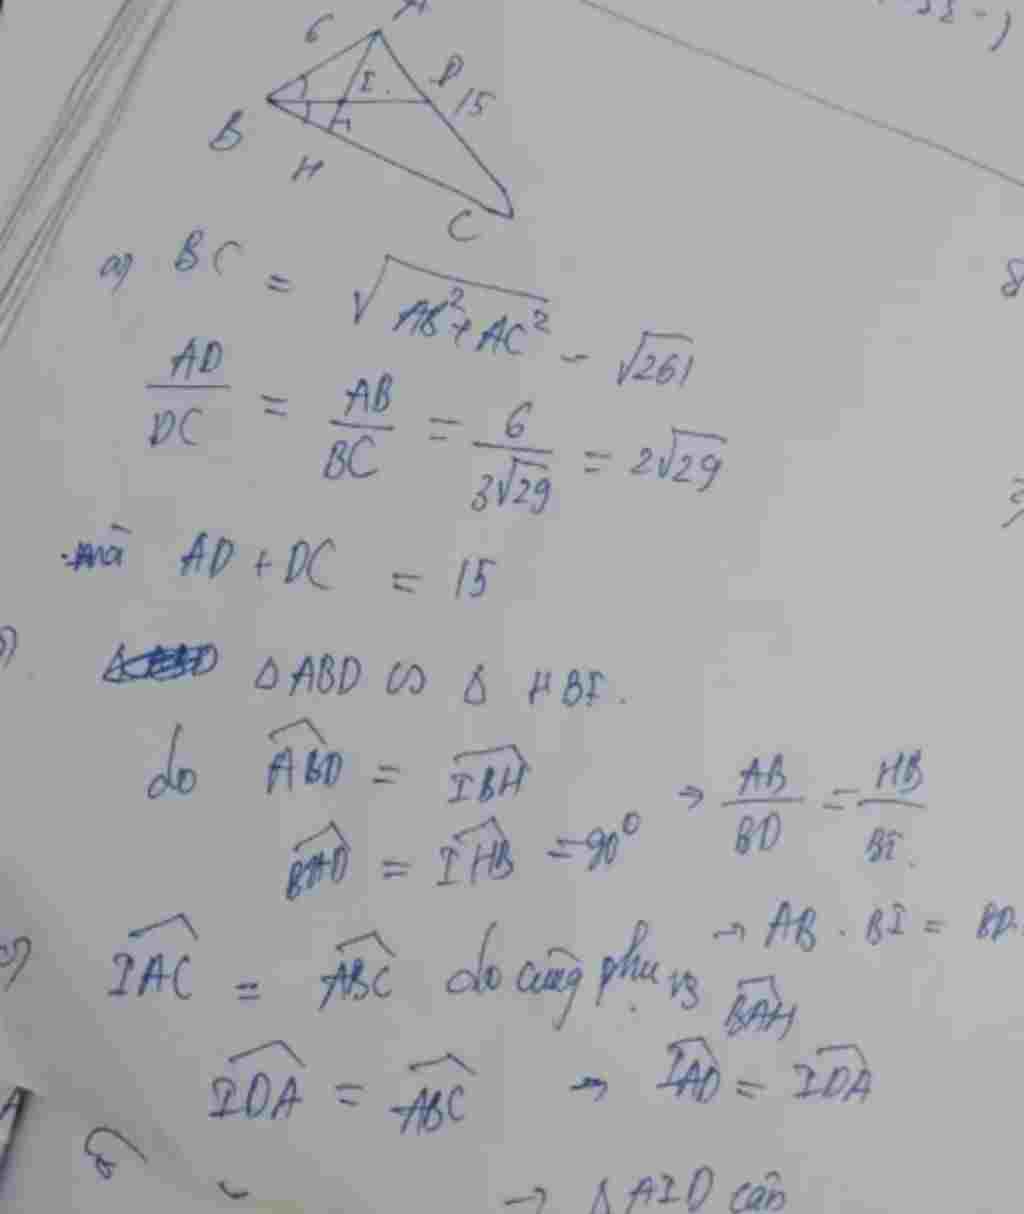 A
6
I
D
15
B
H
C
a) BC = √AB² + AC² = √261
AD/DC = AB/BC = 6/3√29 = 2√29
mà AD + DC = 15
Δ ABD ∽ Δ HBI.
do ABD = IBH
BAD = IHB = 90⁰
→ AB/BD = HB/BI.
→ AB . BI = BD.
c) IAC = ABC do cùng phụ vs BAH
IDA = ABC → IAD = IDA
→ Δ AID cân